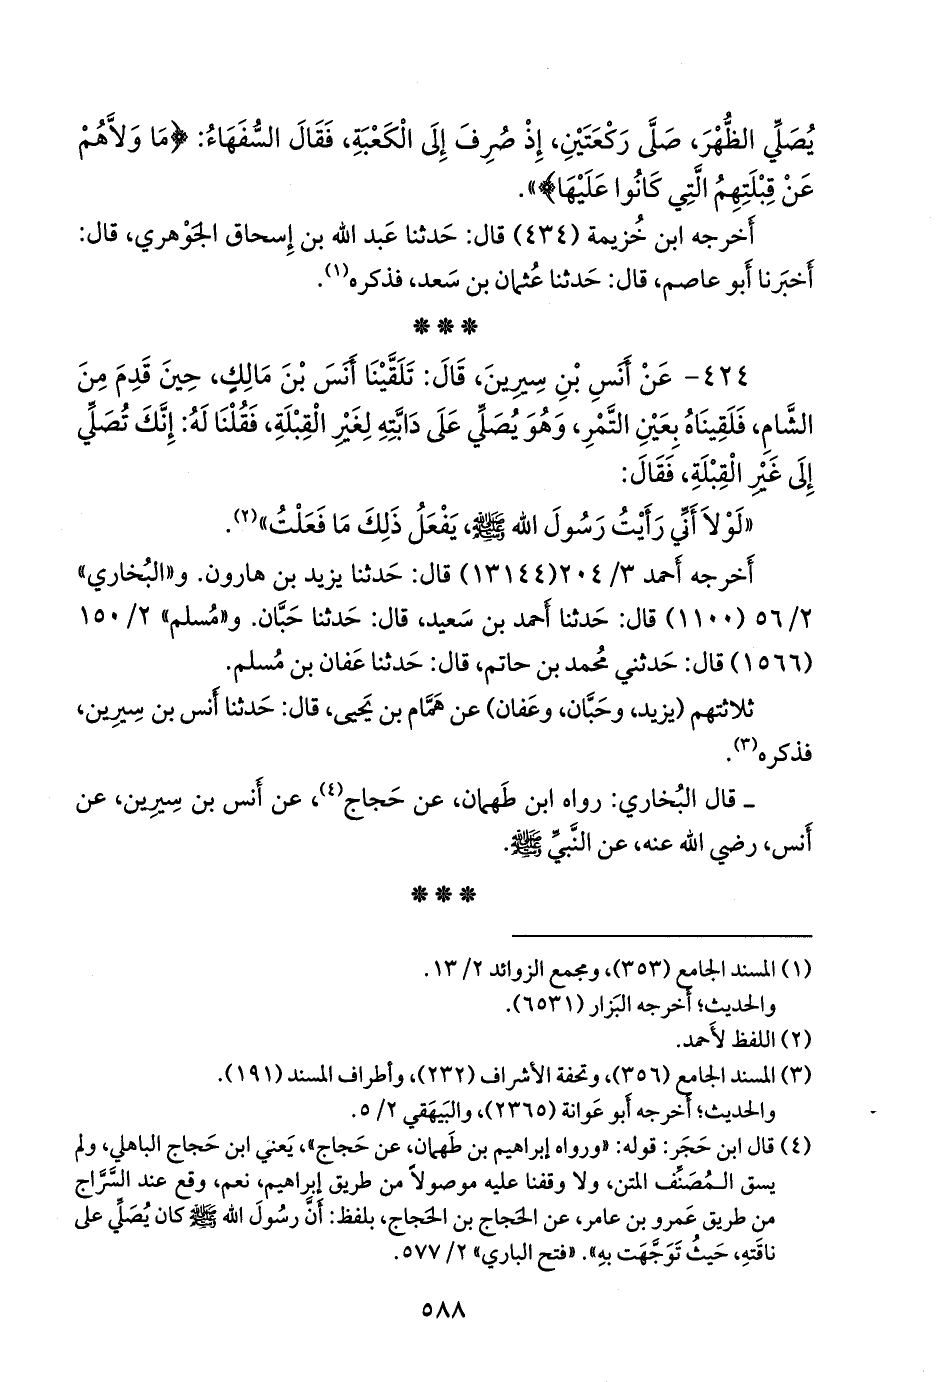 يُصَلِّي الظُّهْرَ، صَلَّى رَكْعَتَيْنِ، إِذْ صُرِفَ إِلَى الْكَعْبَةِ، فَقَالَ السُّفَهَاءُ: ﴿مَا وَلاَّهُمْ
عَنْ قِبْلَتِهِمُ الَّتِي كَانُوا عَلَيْهَا﴾».
أَخرجه ابن خُزيمة (٤٣٤) قال: حَدثنا عَبد الله بن إِسحاق الجَوْهري، قال:
أَخبَرنا أَبو عاصم، قال: حَدثنا عُثمان بن سَعد، فذكره(١).
* * *
٤٢٤- عَنْ أَنَسِ بْنِ سِيرِينَ، قَالَ: تَلَقَّيْنَا أَنَسَ بْنَ مَالِكٍ، حِينَ قَدِمَ مِنَ
الشَّامِ، فَلَقِينَاهُ بِعَيْنِ التَّمْرِ، وَهُوَ يُصَلِّي عَلَى دَابَّتِهِ لِغَيْرِ الْقِبْلَةِ، فَقُلْنَا لَهُ: إِنَّكَ تُصَلِّي
إِلَى غَيْرِ الْقِبْلَةِ، فَقَالَ:
«لَوْلاَ أَنِّي رَأَيْتُ رَسُولَ الله ﷺ، يَفْعَلُ ذَلِكَ مَا فَعَلْتُ»(٢).
أَخرجه أَحمد ٣/ ٢٠٤(١٣١٤٤) قال: حَدثنا يزيد بن هارون. و«البُخاري»
٢/ ٥٦ (١١٠٠) قال: حَدثنا أَحمد بن سَعيد، قال: حَدثنا حَبَّان. و«مُسلم» ٢/ ١٥٠
(١٥٦٦) قال: حَدثني مُحمد بن حاتم، قال: حَدثنا عَفان بن مُسلم.
ثلاثتهم (يزيد، وحَبَّان، وعَفان) عن هَمَّام بن يَحيى، قال: حَدثنا أَنس بن سِيرِين،
فذكره(٣).
ـ قال البُخاري: رواه ابن طَهمان، عن حَجاج(٤)، عن أَنس بن سِيرِين، عن
أَنس، رضي الله عنه، عن النَّبيِّ ﷺ.
* * *
(١) المسند الجامع (٣٥٣)، ومجمع الزوائد ٢/ ١٣.
والحديث؛ أَخرجه البَزار (٦٥٣١).
(٢) اللفظ لأَحمد.
(٣) المسند الجامع (٣٥٦)، وتحفة الأشراف (٢٣٢)، وأطراف المسند (١٩١).
والحديث؛ أَخرجه أَبو عَوانة (٢٣٦٥)، والبَيهَقي ٢/ ٥.
(٤) قال ابن حَجَر: قوله: «ورواه إبراهيم بن طَهمان، عن حَجاج»، يَعني ابن حَجاج الباهلي، ولم
يسق المُصَنِّف المتن، ولا وقفنا عليه موصولاً من طريق إبراهيم، نعم، وقع عند السَّرَّاج
من طريق عَمرو بن عامر، عن الحَجاج بن الحَجاج، بلفظ: أَنَّ رسُولَ الله ﷺ كان يُصَلِّي على
ناقَتِهِ، حَيثُ تَوَجَّهَت بِهِ». «فتح الباري» ٢/ ٥٧٧.
٥٨٨